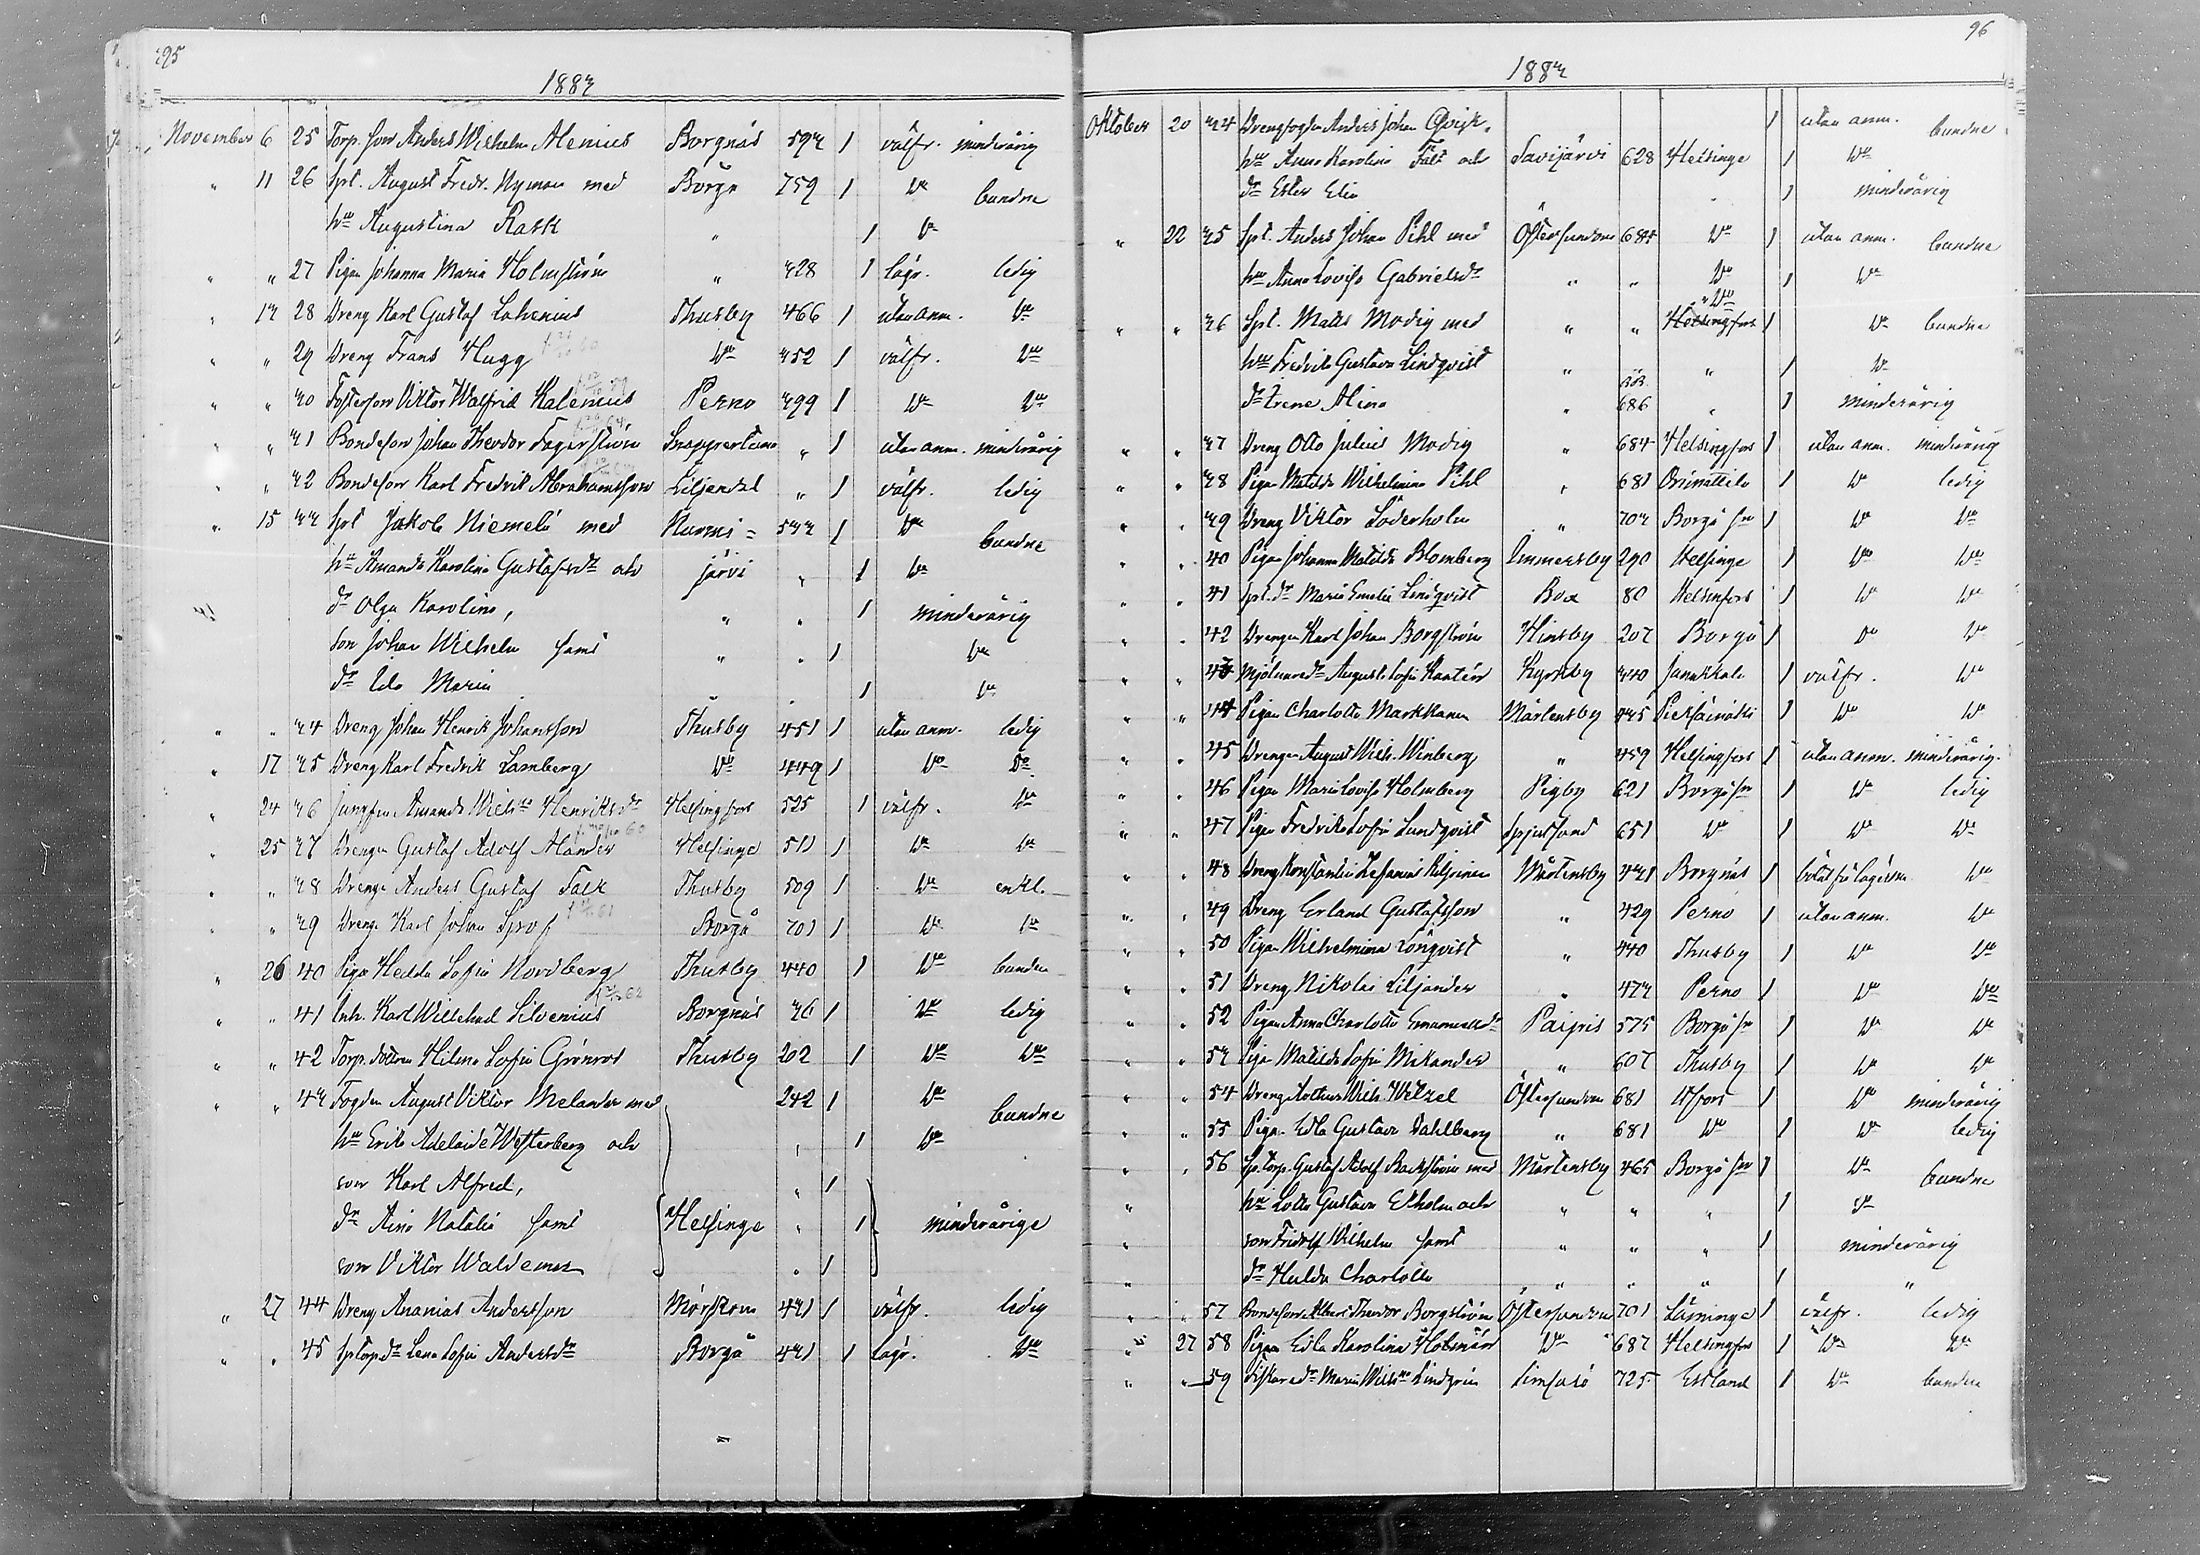 95
1883
November 6 25 Torp. son Anders Wilhelm Alenius Borgnäs 593 1 välfr. minderårig
" 11 26 Spt. August Fredr. Nyman med Borgå 759 1 Do bundne
hu Augustina Rask " 1 Do
" " 27 Pigan Johanna Maria Holmström " 328 1 lägr. ledig
" 13 28 Dreng Karl Gustaf Lahenius Thusby 466 1 utan anm. Do
" " 29 Dreng Frans Hugg Do 352 1 välfr. Do
" " 30 Fosterson Viktor Walfrid Kalenius Perno 399 1 Do Do
" " 31 Bondeson Johan Theodor Fagerström Snappertuna " 1 utan anm. minderårig
" " 32 Bondeson Karl Fredrik Abrahamsson Liljendal " 1 välfr. ledig
" 15 33 Spt Jakob Niemelä med Nurmi= 533 1 Do bundne
hu Amanda Karolina Gustafsdr och järvi " 1 Do
dr Olga Karolina, " " 1 minderårig
son Johan Wilhelm samt " " 1 Do
dr Ida Maria " " 1 Do
" " 34 Dreng Johan Henrik Johansson Thusby 451 1 utan anm. ledig
" 17 35 Dreng Karl Fredrik Lamberg Do 449 1 Do Do
" 24 36 Jungfrun Amanda Wilhna Henriksdr Helsingfors 525 1 välfr. Do
" 25 37 Drengen Gustaf Adolf Alander Helsinge 511 1 Do Do
" " 38 Drenge Anders Gustaf Falk Thusby 509 1 Do enkl.
" " 39 Drenge Karl Johan Sprof Borgå 701 1 Do Do
" 26 40 Pigan Hedda Sofia Nordberg Thusby 440 1 Do bunden
" " 41 Inh. Karl Willehad Silvenius Borgnäs 36 1 Do ledig
" " 42 Torp. dottren Hilma Sofia Grönroos Thusby 202 1 Do Do
" " 43 Fogden August Viktor Melander med 242 1 Do bundne
hu Erika Adelaide Westerberg och " 1 Do
son Karl Alfred, " 1
dr Aino Natalia samt Helsinge " 1 minderårige
son Viktor Waldemar " 1
" 27 44 Dreng Ananias Andersson Mörskom 431 1 välfr. ledig
" " 45 Sptorpdr Lena Sofia Andersdr Borgå 431 1 lägr. Do
96
1883
Oktober 20 34 Drengfogden Anders Johan Qvist, 1 utan anm. bundne
hu Anna Karolina Fält och Savijärvi 628 Helsinge 1 Do
dr Ester Elin " 1 minderårig
" 22 35 Spt. Anders Johan Pihl med Östersundom 684 Do 1 utan anm. bundne
hu Anna Lovisa Gabrielsdr " " Do 1 Do
" " 36 Spt. Matts Modig med " " Do Helsingfors 1 Do bundne
hu Fredrika Gustava Lindqvist " " " 1 Do
dr Irene Alina " 686 " 1 minderårig
" " 37 Dreng Otto Julius Modig " 684 Helsingfors 1 utan anm. minderårig
" " 38 Pigan Matilda Wilhelmina Pihl " 681 Orimattila 1 Do ledig
" " 39 Dreng Viktor Söderholm " 703 Borgå sn 1 Do Do
" " 40 Pigan Johanna Matilda Blomberg Immersby 290 Helsinge 1 Do Do
" " 41 Spt. dr Maria Emelie Lindqvist Box 80 Helsinfors 1 Do Do
" " 42 Drengen Karl Johan Borgström Hinsby 207 Borgå 1 Do Do
" " 43 Mjölnaredr Augusta Sofia Kantén Kyrkby 340 Janakkala 1 välfr. Do
" " 44 Pigan Charlotta Markkanen Mårtensby 445 Pieksämäki 1 Do Do
" " 45 Drengen August Wilh. Winberg " 459 Helsingfors 1 utan anm. minderårig.
" " 46 Pigan Maria Lovisa Holmberg Pigby 621 Borgå sn 1 Do ledig
" " 47 Pigan Fredrika Sofia Lundqvist Spjutsund 651 Do 1 Do Do
" " 48 Dreng Konstantin Mårtensby 431 Borgnäs 1 Do
" " 49 Dreng Erland Gustafsson " 429 Perno 1 utan anm. Do
" " 50 Pigan Wilhelmina Lönqvist " 440 Thusby 1 Do Do
" " 51 Dreng Nikolai Liljander " 473 Perno 1 Do Do
" " 52 Pigan Anna Charlotta Emanuelsdr Paipis 575 Borgå sn 1 Do Do
" " 53 Pigan Matilda Sofia Mikander " 607 Thusby 1 Do Do
" " 54 Dreng Arthur Wilh. Wetzel Östersundom 681 H:fors 1 Do minderårig
" " 55 Pigan Edla Gustava Dahlberg " 681 Do 1 Do ledig
" " 56 Sp. torp. Gustaf Adolf Backström med Mårtensby 465 Borgå sn 1 Do bundne
" hu Lotta Gustava Ekholm och " " " 1 Do
" son Fridolf Wilhelm samt " " " 1 minderårig
" dr Hulda Charlotta " " " 1 "
" 57 Bondeson Albert Theodor Borgström Östersundom 701 1 välfr. ledig
" 27 58 Pigan Edla Karolina Holmén Do 687 Helsingfors 1 Do Do
" " 59 Fiskaredr Maria Wilhna Lindgrén Simsalö 725 Estland 1 Do bunden